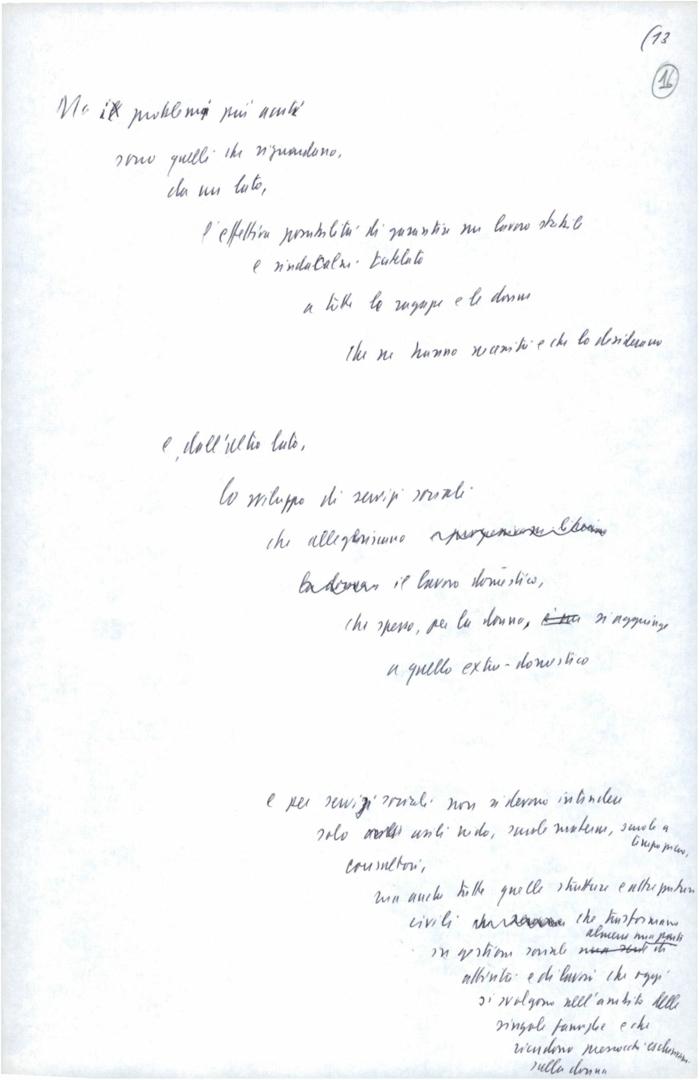 (13
16
Ma i problemi più acuti
sono quelli che riguardano,
da un lato,
l'effettiva possibilità di garantire un lavoro stabile
e sindacalm. tutelato
a tutte le ragazze e le donne
che ne hanno necessità e che lo desiderano
e, dall'altro lato,
lo sviluppo di servizi sociali
che alleggeriscano
la donna il lavoro domestico,
che spesso, per la donna, si aggiunge
a quello extra-domestico
e per servizi sociali non si devono intendere
solo asili nido, scuole materne, scuole a
tempo pieno,
consultori,
ma anche tutte quelle strutture e attrezzature
civili che trasformano
almeno una parte
in gestione sociale di
attività e di lavori che oggi
si svolgono nell'ambito delle
singole famiglie e che
ricadono pressoché esclusivam.
sulla donna